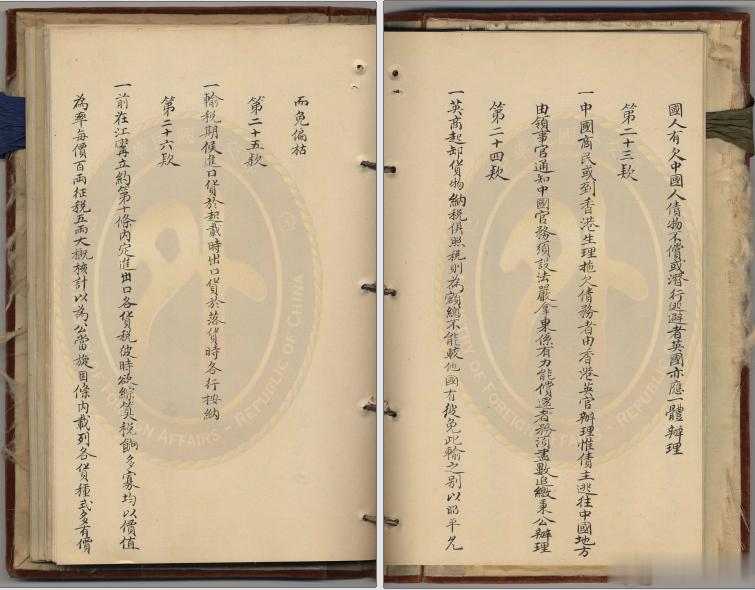 國人有欠中國人債物不償或潛行逃避者英國亦應一體辦理
第二十三款
一中國商民或到香港生理拖欠債務者由香港英官辦理惟債主逃往中國地方
由領事官通知中國官務須設法嚴拿果係有力能償還者務須盡數追繳秉公辦理
第二十四款
一英商起卸貨物納稅俱照稅則為額總不能較他國有彼免此輸之別以昭平允
而免偏枯
第二十五款
一輸稅期候進口貨於起載時出口貨於落貨時各行按納
第二十六款
一前在江寧立約第十條內定進出口各貨稅彼時欲綜算稅餉多寡均以價值
為率每價百兩征稅五兩大概核計以為公當旋因條內載列各貨種式多有價
MINISTRY OF FOREIGN AFFAIRS · REPUBLIC OF CHINA
FOREIGN AFFAIRS · REPUBLIC OF CHINA